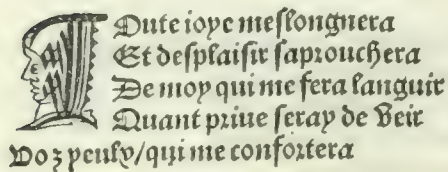 Toute ioye meslongnera
Et desplaisir saprouchera
De moy qui me fera languir
Quant priue seray de Veir
Voz yeulx/qui me confortera